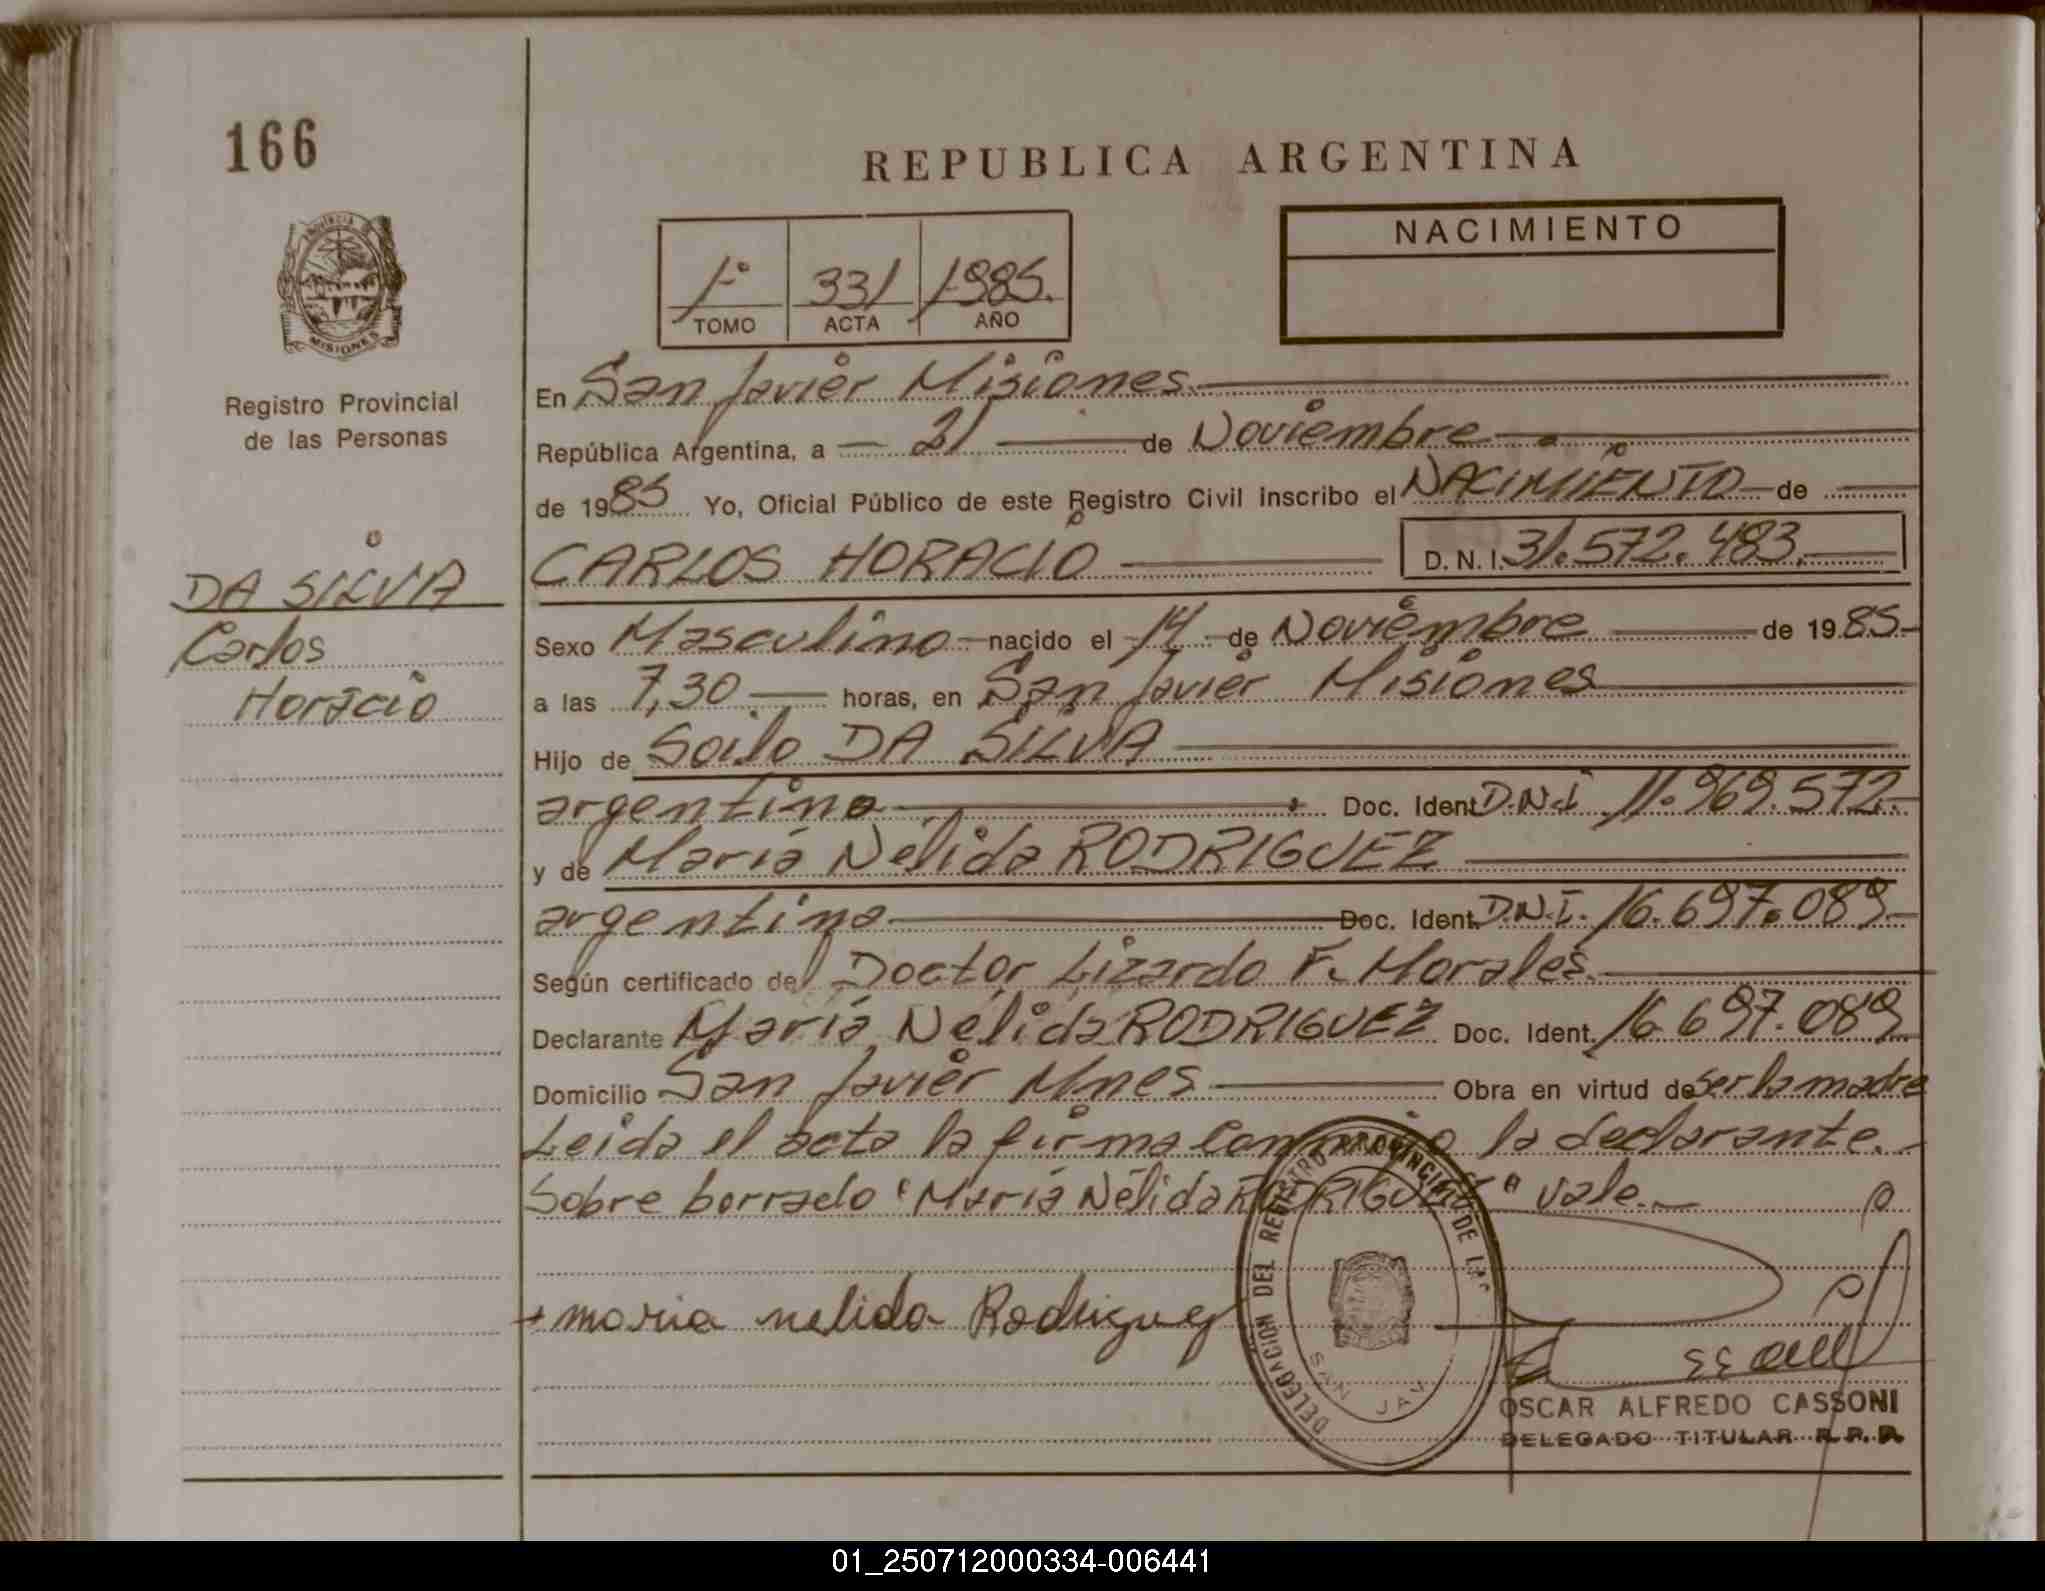 166
REPUBLICA ARGENTINA
PROVINCIA DE
MISIONES
Registro Provincial
de las Personas
1º 331 1985.
TOMO ACTA AÑO
NACIMIENTO
En San Javier Misiones.
República Argentina, a 21 de Noviembre
de 1985 Yo, Oficial Público de este Registro Civil inscribo el NACIMIENTO de
CARLOS HORACIO D.N.I. 31.572.483.
DA SILVA
Carlos
Horacio
Sexo Masculino nacido el 14 de Noviembre de 1985.
a las 7,30 horas, en San Javier Misiones
Hijo de Soilo DA SILVA
argentino Doc. Ident D.N.I 11.969.572.
y de María Nélida RODRIGUEZ
argentina Doc. Ident. D.N.I. 16.697.089.
Según certificado del Doctor Lizardo F. Morales.
Declarante María Nélida RODRIGUEZ Doc. Ident. 16.697.089
Domicilio San Javier Mnes Obra en virtud de ser la madre
Leída el acta la firma conmigo la declarante.
Sobre borrado "María Nélida RODRIGUEZ" vale.
maria nelida Rodriguez
DELEGACION DEL REGISTRO PROVINCIAL DE LAS
SAN JAV
OSCAR ALFREDO CASSONI
DELEGADO TITULAR R.P.P.
01_250712000334-006441